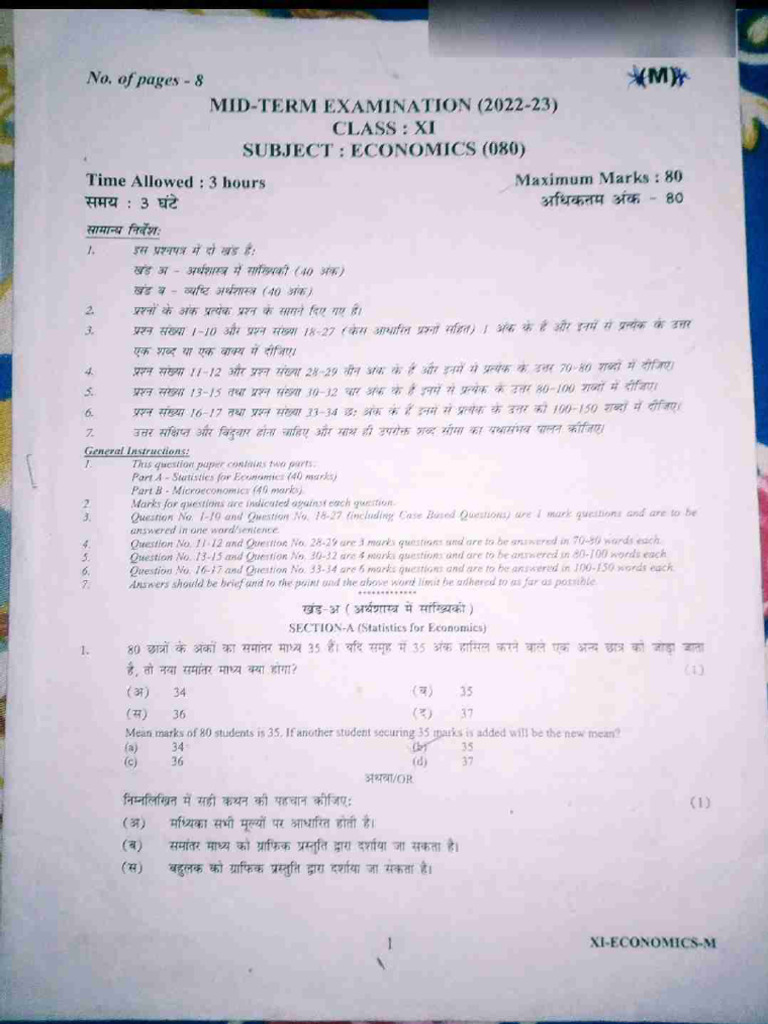 No. of pages - 8
(M)
MID-TERM EXAMINATION (2022-23)
CLASS : XI
SUBJECT : ECONOMICS (080)
Time Allowed : 3 hours Maximum Marks : 80
समय : 3 घंटे अधिकतम अंक - 80
सामान्य निर्देश:
1. इस प्रश्नपत्र में दो खंड है:
खंड अ - अर्थशास्त्र में सांख्यिकी (40 अंक)
खंड ब - व्यष्टि अर्थशास्त्र (40 अंक)
2. प्रश्नों के अंक प्रत्येक प्रश्न के सामने दिए गए है।
3. प्रश्न संख्या 1-10 और प्रश्न संख्या 18-27 (केस आधारित प्रश्नों सहित) 1 अंक के है और इनमें से प्रत्येक के उत्तर
एक शब्द या एक वाक्य में दीजिए।
4. प्रश्न संख्या 11-12 और प्रश्न संख्या 28-29 तीन अंक के है और इनमें से प्रत्येक के उत्तर 70-80 शब्दों में दीजिए।
5. प्रश्न संख्या 13-15 तथा प्रश्न संख्या 30-32 चार अंक के है इनमें से प्रत्येक के उत्तर 80-100 शब्दों में दीजिए।
6. प्रश्न संख्या 16-17 तथा प्रश्न संख्या 33-34 छ: अंक के है इनमें से प्रत्येक के उत्तर को 100-150 शब्दों में दीजिए।
7. उत्तर संक्षिप्त और बिंदुवार होना चाहिए और साथ ही उपरोक्त शब्द सीमा का यथासंभव पालन कीजिए।
General Instructions:
1. This question paper contains two parts.
Part A - Statistics for Economics (40 marks)
Part B - Microeconomics (40 marks).
2. Marks for questions are indicated against each question.
3. Question No. 1-10 and Question No. 18-27 (including Case Based Questions) are 1 mark questions and are to be
answered in one word/sentence.
4. Question No. 11-12 and Question No. 28-29 are 3 marks questions and are to be answered in 70-80 words each.
5. Question No. 13-15 and Question No. 30-32 are 4 marks questions and are to be answered in 80-100 words each.
6. Question No. 16-17 and Question No. 33-34 are 6 marks questions and are to be answered in 100-150 words each.
7. Answers should be brief and to the point and the above word limit be adhered to as far as possible.
*************
खंड-अ ( अर्थशास्त्र में सांख्यिकी )
SECTION-A (Statistics for Economics)
1. 80 छात्रों के अंकों का समांतर माध्य 35 है। यदि समूह में 35 अंक हासिल करने वाले एक अन्य छात्र को जोड़ा जाता
है, तो नया समांतर माध्य क्या होगा? (1)
(अ) 34 (ब) 35
(स) 36 (द) 37
Mean marks of 80 students is 35. If another student securing 35 marks is added will be the new mean?
(a) 34 (b) 35
(c) 36 (d) 37
अथवा/OR
निम्नलिखित में सही कथन की पहचान कीजिए: (1)
(अ) मध्यिका सभी मूल्यों पर आधारित होती है।
(ब) समांतर माध्य को ग्राफिक प्रस्तुति द्वारा दर्शाया जा सकता है।
(स) बहुलक को ग्राफिक प्रस्तुति द्वारा दर्शाया जा सकता है।
1
XI-ECONOMICS-M